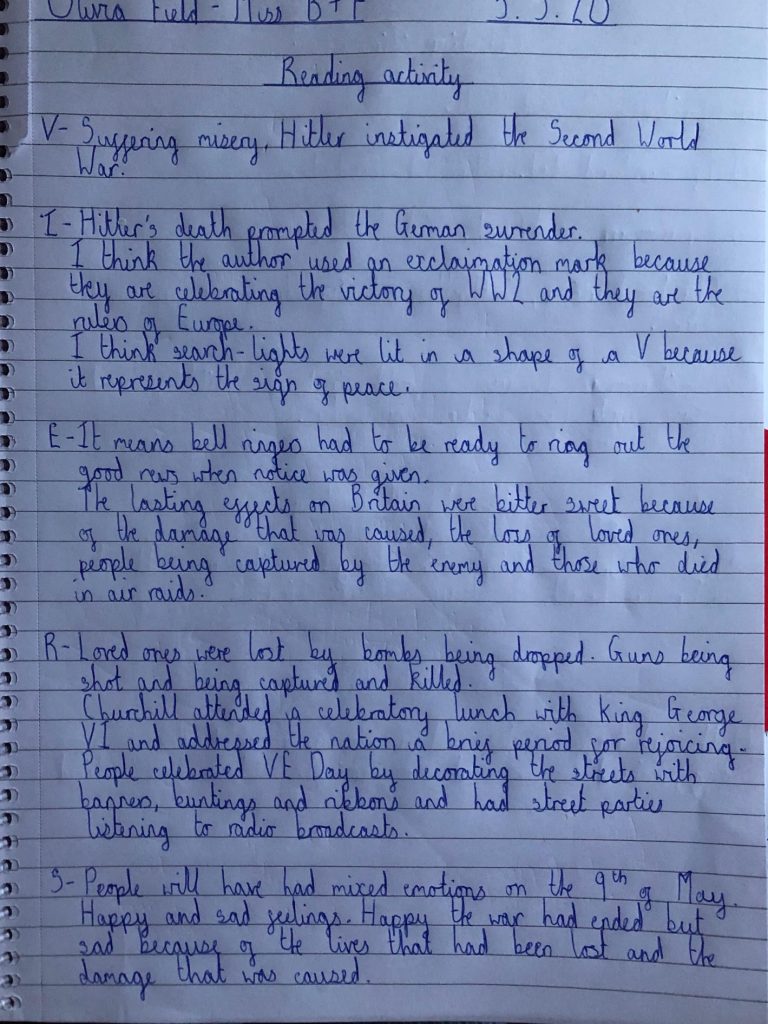 Olivia Field - Miss B+F 5.5.20
Reading activity
V- Suffering misery, Hitler instigated the Second World
War.
I - Hitler's death prompted the German surrender.
I think the author used an exclaimation mark because
they are celebrating the victory of WW2 and they are the
rulers of Europe.
I think search-lights were lit in a shape of a V because
it represents the sign of peace.
E - It means bell ringers had to be ready to ring out the
good news when notice was given.
The lasting effects on Britain were bitter sweet because
of the damage that was caused, the loss of loved ones,
people being captured by the enemy and those who died
in air raids.
R- Loved ones were lost by bombs being dropped. Guns being
shot and being captured and killed.
Churchill attended a celebratory lunch with King George
VI and addressed the nation a brief period for rejoicing.
People celebrated VE Day by decorating the streets with
banners, buntings and ribbons and had street parties
listening to radio broadcasts.
S- People will have had mixed emotions on the 9th of May.
Happy and sad feelings. Happy the war had ended but
sad because of the lives that had been lost and the
damage that was caused.